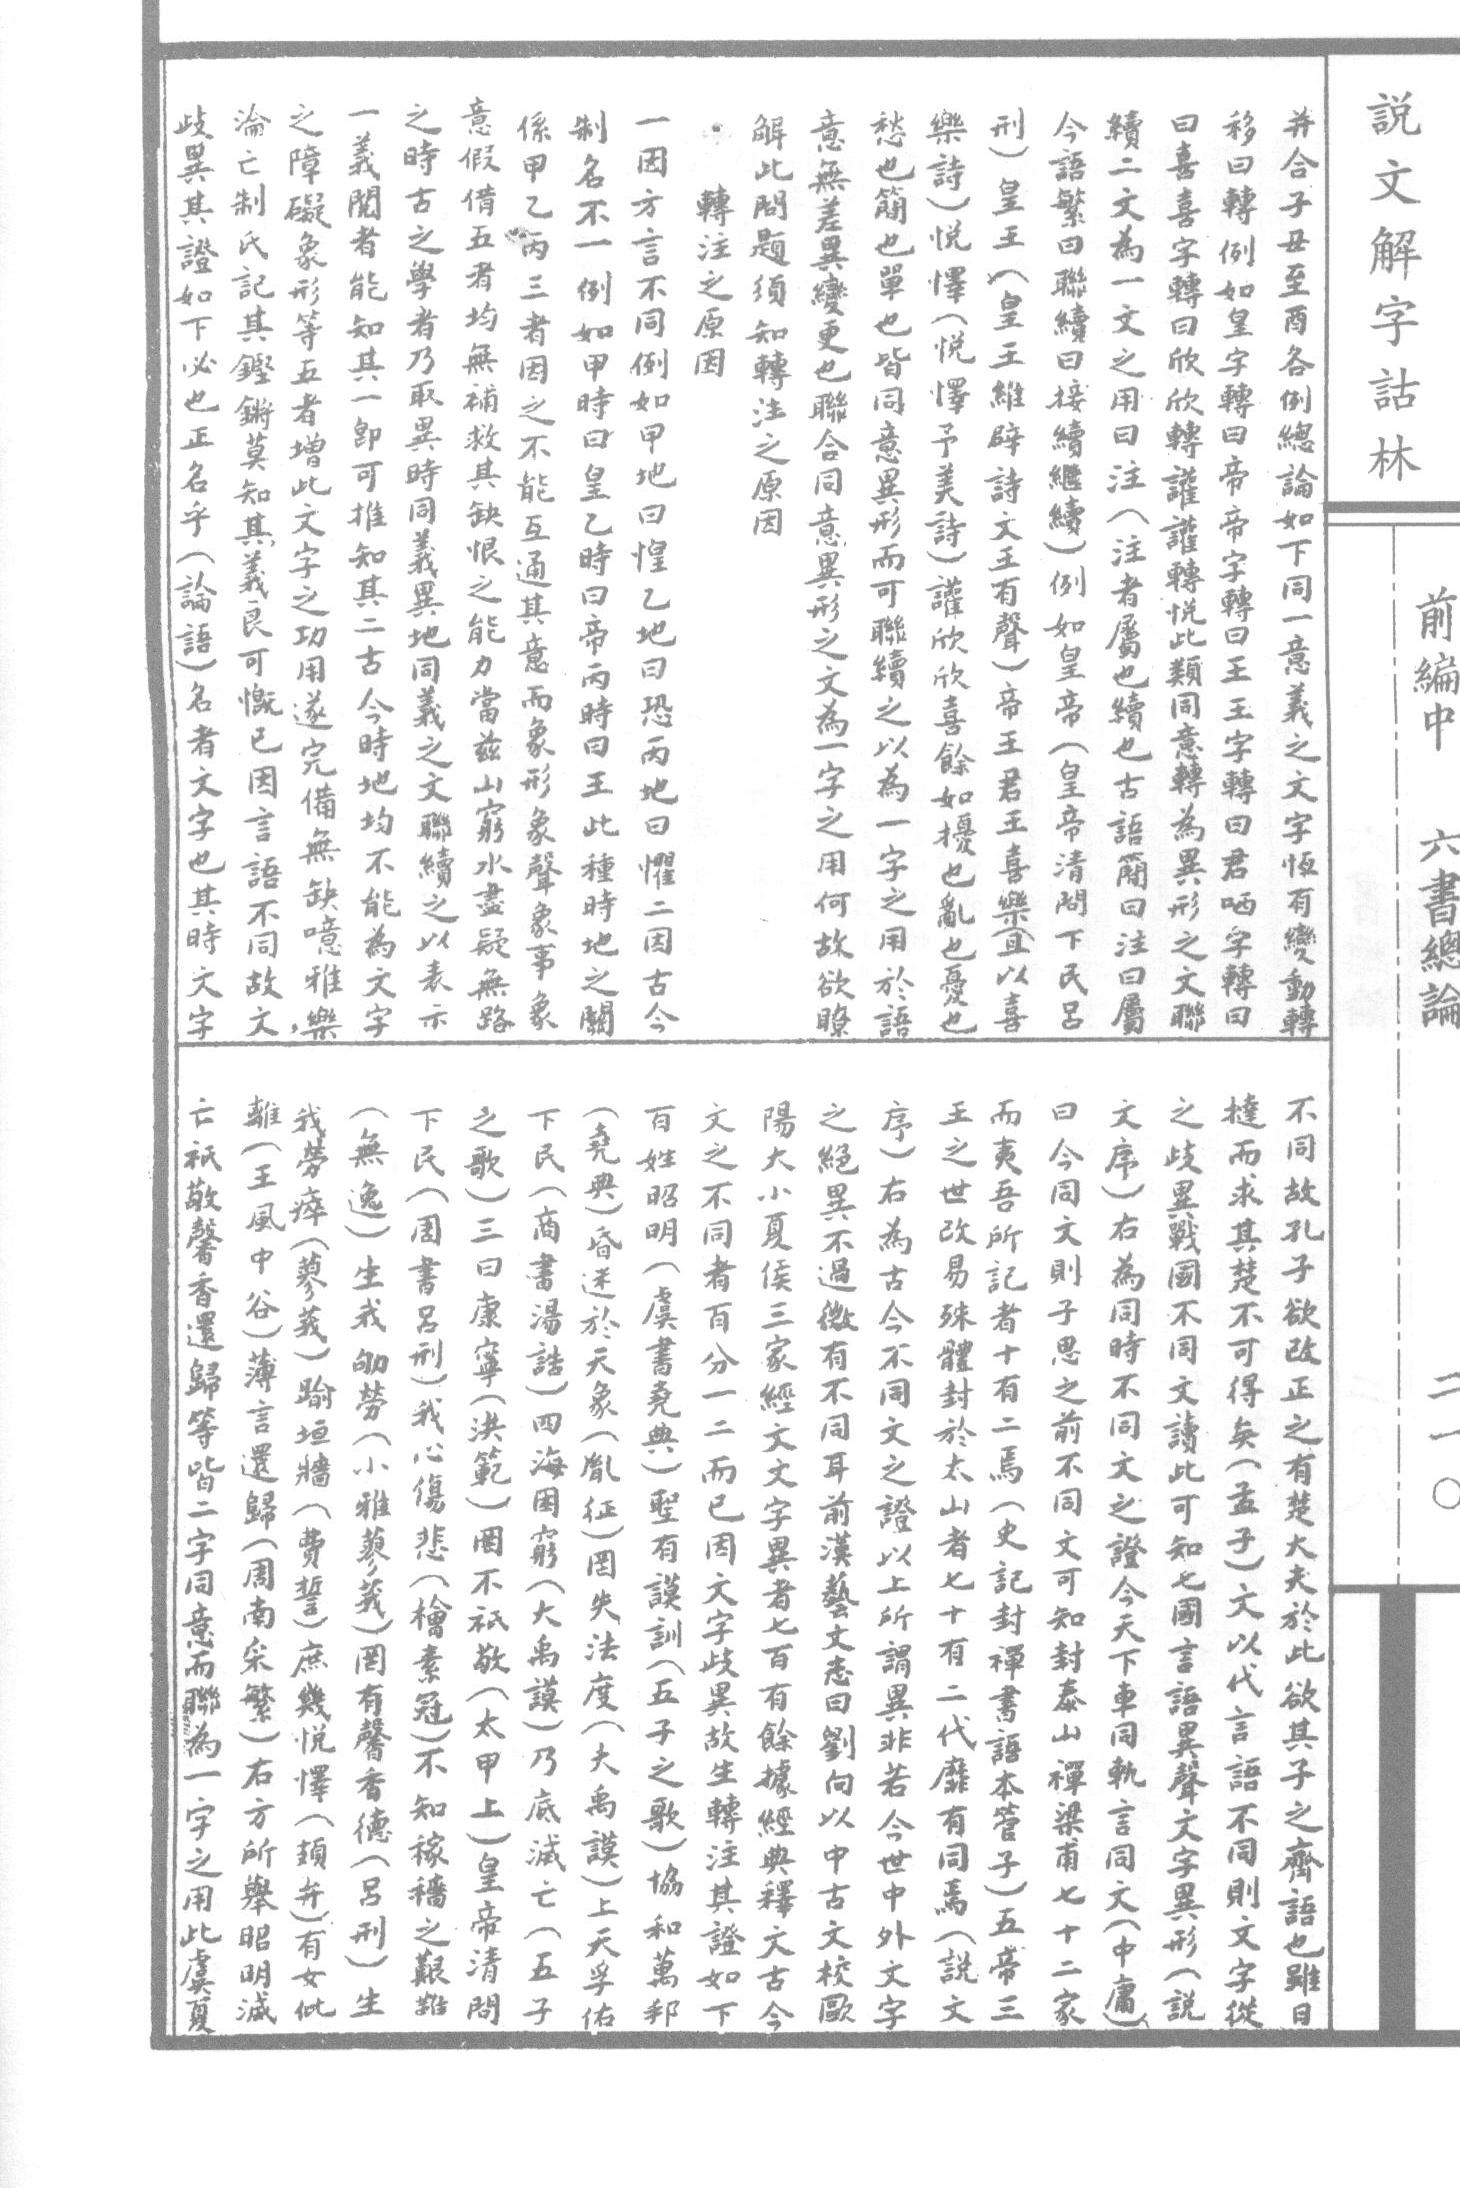 説文解字詁林
前編中　六書總論
二一〇
并合子丑至酉各例總論如下同一意義之文字恆有變動轉
移曰轉例如皇字轉曰帝帝字轉曰王王字轉曰君哂字轉曰
曰喜喜字轉曰欣欣轉讙讙轉悅此類同意轉為異形之文聯
續二文為一文之用曰注（注者屬也續也古語簡曰注曰屬
今語繁曰聯續曰接續繼續）例如皇帝（皇帝清問下民呂
刑）皇王（皇王維辟詩文王有聲）帝王君王喜樂（且以喜
樂詩）悅懌（悅懌予美詩）讙欣欣喜餘如擾也亂也憂也
愁也簡也單也皆同意異形而可聯續之以為一字之用於語
意無差異變更也聯合同意異形之文為一字之用何故欲瞭
解此問題須知轉注之原因
轉注之原因
一因方言不同例如甲地曰惶乙地曰恐丙地曰懼二因古今
制名不一例如甲時曰皇乙時曰帝丙時曰王此種時地之關
係甲乙丙三者因之不能互通其意而象形象聲象事象
意假借五者均無補救其缺恨之能力當茲山窮水盡疑無路
之時古之學者乃取異時同義異地同義之文聯續之以表示
一義閱者能知其一卽可推知其二古今時地均不能為文字
之障礙象形等五者增此文字之功用遂完備無缺噫雅樂
淪亡制氏記其鏗鏘莫知其義良可慨已因言語不同故文
歧異其證如下必也正名乎（論語）名者文字也其時文字
不同故孔子欲改正之有楚大夫於此欲其子之齊語也雖日
撻而求其楚不可得矣（孟子）文以代言語不同則文字從
之歧異戰國不同文讀此可知七國言語異聲文字異形（説
文序）右為同時不同文之證今天下車同軌言同文（中庸）
曰今同文則子思之前不同文可知封泰山禪梁甫七十二家
而夷吾所記者十有二焉（史記封禪書語本管子）五帝三
王之世改易殊體封於太山者七十有二代靡有同焉（説文
序）右為古今不同文之證以上所謂異非若今世中外文字
之絕異不過微有不同耳前漢藝文志曰劉向以中古文校歐
陽大小夏侯三家經文文字異者七百有餘據經典釋文古今
文之不同者百分一二而已因文字歧異故生轉注其證如下
百姓昭明（虞書堯典）聖有謨訓（五子之歌）協和萬邦
（堯典）昏迷於天象（胤征）罔失法度（大禹謨）上天孚佑
下民（商書湯誥）四海困窮（大禹謨）乃厎滅亡（五子
之歌）三曰康寧（洪範）罔不祇敬（太甲上）皇帝清問
下民（周書呂刑）我心傷悲（檜素冠）不知稼穡之艱難
（無逸）生我劬勞（小雅蓼莪）罔有馨香德（呂刑）生
我勞瘁（蓼莪）踰垣牆（費誓）庶幾悅懌（頍弁）有女仳
離（王風中谷）薄言還歸（周南采繁）右方所舉昭明滅
亡祇敬馨香還歸等皆二字同意而聯為一字之用此虞夏